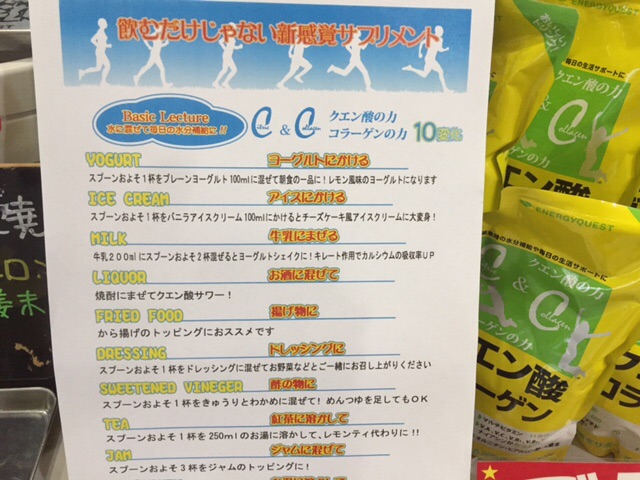 飲むだけじゃない新感覚サプリメント
Basic Lecture
水に混ぜて毎日の水分補給に!!
Citric & Collagen
クエン酸の力
コラーゲンの力
10変化
YOGURT ヨーグルトにかける
スプーンおよそ1杯をプレーンヨーグルト100mlに混ぜて朝食の一品に!レモン風味のヨーグルトになります
ICE CREAM アイスにかける
スプーンおよそ1杯をバニラアイスクリーム100mlにかけるとチーズケーキ風アイスクリームに大変身!
MILK 牛乳にまぜる
牛乳200mlにスプーンおよそ2杯混ぜるとヨーグルトシェイクに!キレート作用でカルシウムの吸収率UP
LIQUOR お酒に混ぜて
焼酎にまぜてクエン酸サワー!
FRIED FOOD 揚げ物に
から揚げのトッピングにおススメです
DRESSING ドレッシングに
スプーンおよそ1杯をドレッシングに混ぜてお野菜などとご一緒にお召し上がりください
SWEETENED VINEGER 酢の物に
スプーンおよそ1杯をきゅうりとわかめに混ぜて!めんつゆを足してもOK
TEA 紅茶に溶かして
スプーンおよそ1杯を250mlのお湯に溶かして、レモンティ代わりに!!
JAM ジャムに混ぜて
スプーンおよそ3杯をジャムのトッピングに!
ENERGYQUEST
毎日の生活サポートに
クエン酸の力
Collagen
ENERGYQUEST
の水分補給や毎日の生活サポートに
クエン酸の力
& Collagen
コラーゲンの力
クエン酸
コラーゲン